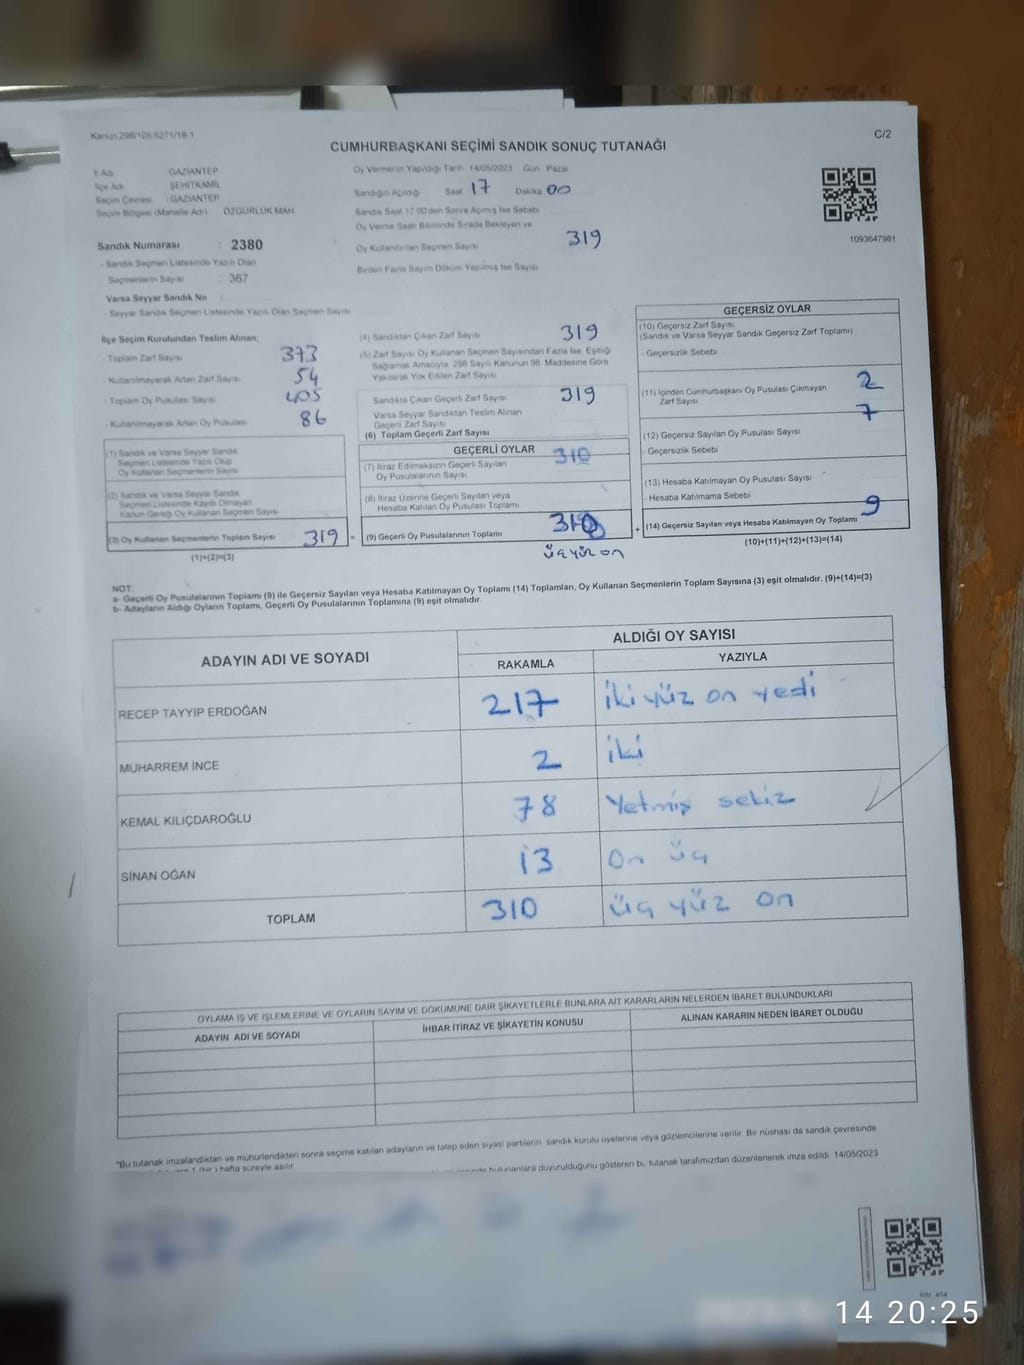 Kanun 298/105:6271/18-1
C/2
CUMHURBAŞKANI SEÇİMİ SANDIK SONUÇ TUTANAĞI
İl Adı GAZİANTEP
İlçe Adı ŞEHİTKAMİL
Seçim Çevresi : GAZİANTEP
Seçim Bölgesi (Mahalle Adı) ÖZGÜRLÜK MAH
Sandık Numarası : 2380
- Sandık Seçmen Listesinde Yazılı Olan
Seçmenlerin Sayısı : 367
Varsa Seyyar Sandık No :
- Seyyar Sandık Seçmen Listesinde Yazılı Olan Seçmen Sayısı
Oy Vermenin Yapıldığı Tarih 14/05/2023 Gün Pazar
Sandığın Açıldığı Saat 17 Dakika 00
Sandık Saat 17 00'den Sonra Açılmış İse Sebebi
Oy Verme Saati Bitiminde Sırada Bekleyen ve
Oy Kullandırılan Seçmen Sayısı 319
Birden Fazla Sayım Döküm Yapılmış İse Sayısı
1093647981
İlçe Seçim Kurulundan Teslim Alınan;
- Toplam Zarf Sayısı 373
- Kullanılmayarak Artan Zarf Sayısı 54
- Toplam Oy Pusulası Sayısı 405
- Kullanılmayarak Artan Oy Pusulası 86
(1) Sandık ve Varsa Seyyar Sandık
Seçmen Listesinde Yazılı Olup
Oy Kullanan Seçmenlerin Sayısı
(2) Sandık ve Varsa Seyyar Sandık
Seçmen Listesinde Kayıtlı Olmayan
Kanun Gereği Oy Kullanan Seçmen Sayısı
(3) Oy Kullanan Seçmenlerin Toplam Sayısı 319 =
(1)+(2)=(3)
(4) Sandıktan Çıkan Zarf Sayısı 319
(5) Zarf Sayısı Oy Kullanan Seçmen Sayısından Fazla İse, Eşitliği
Sağlamak Amacıyla, 298 Sayılı Kanunun 98. Maddesine Göre
Yakılarak Yok Edilen Zarf Sayısı
Sandıkta Çıkan Geçerli Zarf Sayısı 319
Varsa Seyyar Sandıktan Teslim Alınan
Geçerli Zarf Sayısı
(6) Toplam Geçerli Zarf Sayısı
GEÇERLİ OYLAR
(7) İtiraz Edilmeksizin Geçerli Sayılan
Oy Pusulasının Sayısı 310
(8) İtiraz Üzerine Geçerli Sayılan veya
Hesaba Katılan Oy Pusulası Toplamı
(9) Geçerli Oy Pusulalarının Toplamı 310 +
üçyüz on
GEÇERSİZ OYLAR
(10) Geçersiz Zarf Sayısı
(Sandık ve Varsa Seyyar Sandık Geçersiz Zarf Toplamı)
- Geçersizlik Sebebi
(11) İçinden Cumhurbaşkanı Oy Pusulası Çıkmayan
Zarf Sayısı 2
7
(12) Geçersiz Sayılan Oy Pusulası Sayısı
- Geçersizlik Sebebi
(13) Hesaba Katılmayan Oy Pusulası Sayısı
- Hesaba Katılmama Sebebi
(14) Geçersiz Sayılan veya Hesaba Katılmayan Oy Toplamı 9
(10)+(11)+(12)+(13)=(14)
NOT:
a- Geçerli Oy Pusulalarının Toplamı (9) ile Geçersiz Sayılan veya Hesaba Katılmayan Oy Toplamı (14) Toplamları, Oy Kullanan Seçmenlerin Toplam Sayısına (3) eşit olmalıdır. (9)+(14)=(3)
b- Adayların Aldığı Oyların Toplamı, Geçerli Oy Pusulalarının Toplamına (9) eşit olmalıdır.
ADAYIN ADI VE SOYADI ALDIĞI OY SAYISI
RAKAMLA YAZIYLA
RECEP TAYYİP ERDOĞAN 217 iki yüz on yedi
MUHARREM İNCE 2 iki
KEMAL KILIÇDAROĞLU 78 Yetmiş sekiz
SİNAN OĞAN 13 On üç
TOPLAM 310 üç yüz on
OYLAMA İŞ VE İŞLEMLERİNE VE OYLARIN SAYIM VE DÖKÜMÜNE DAİR ŞİKAYETLERLE BUNLARA AİT KARARLARIN NELERDEN İBARET BULUNDUKLARI
ADAYIN ADI VE SOYADI İHBAR İTİRAZ VE ŞİKAYETİN KONUSU ALINAN KARARIN NEDEN İBARET OLDUĞU
*Bu tutanak imzalandıktan ve mühürlendikten sonra seçime katılan adayların ve talep eden siyasi partilerin sandık kurulu üyelerine veya gözlemcilerine verilir. Bir nüshası da sandık çevresinde
1 (bir) hafta süreyle asılır.
bulunanlara duyurulduğunu gösteren bu tutanak tarafımızdan düzenlenerek imza edildi. 14/05/2023
14 20:25